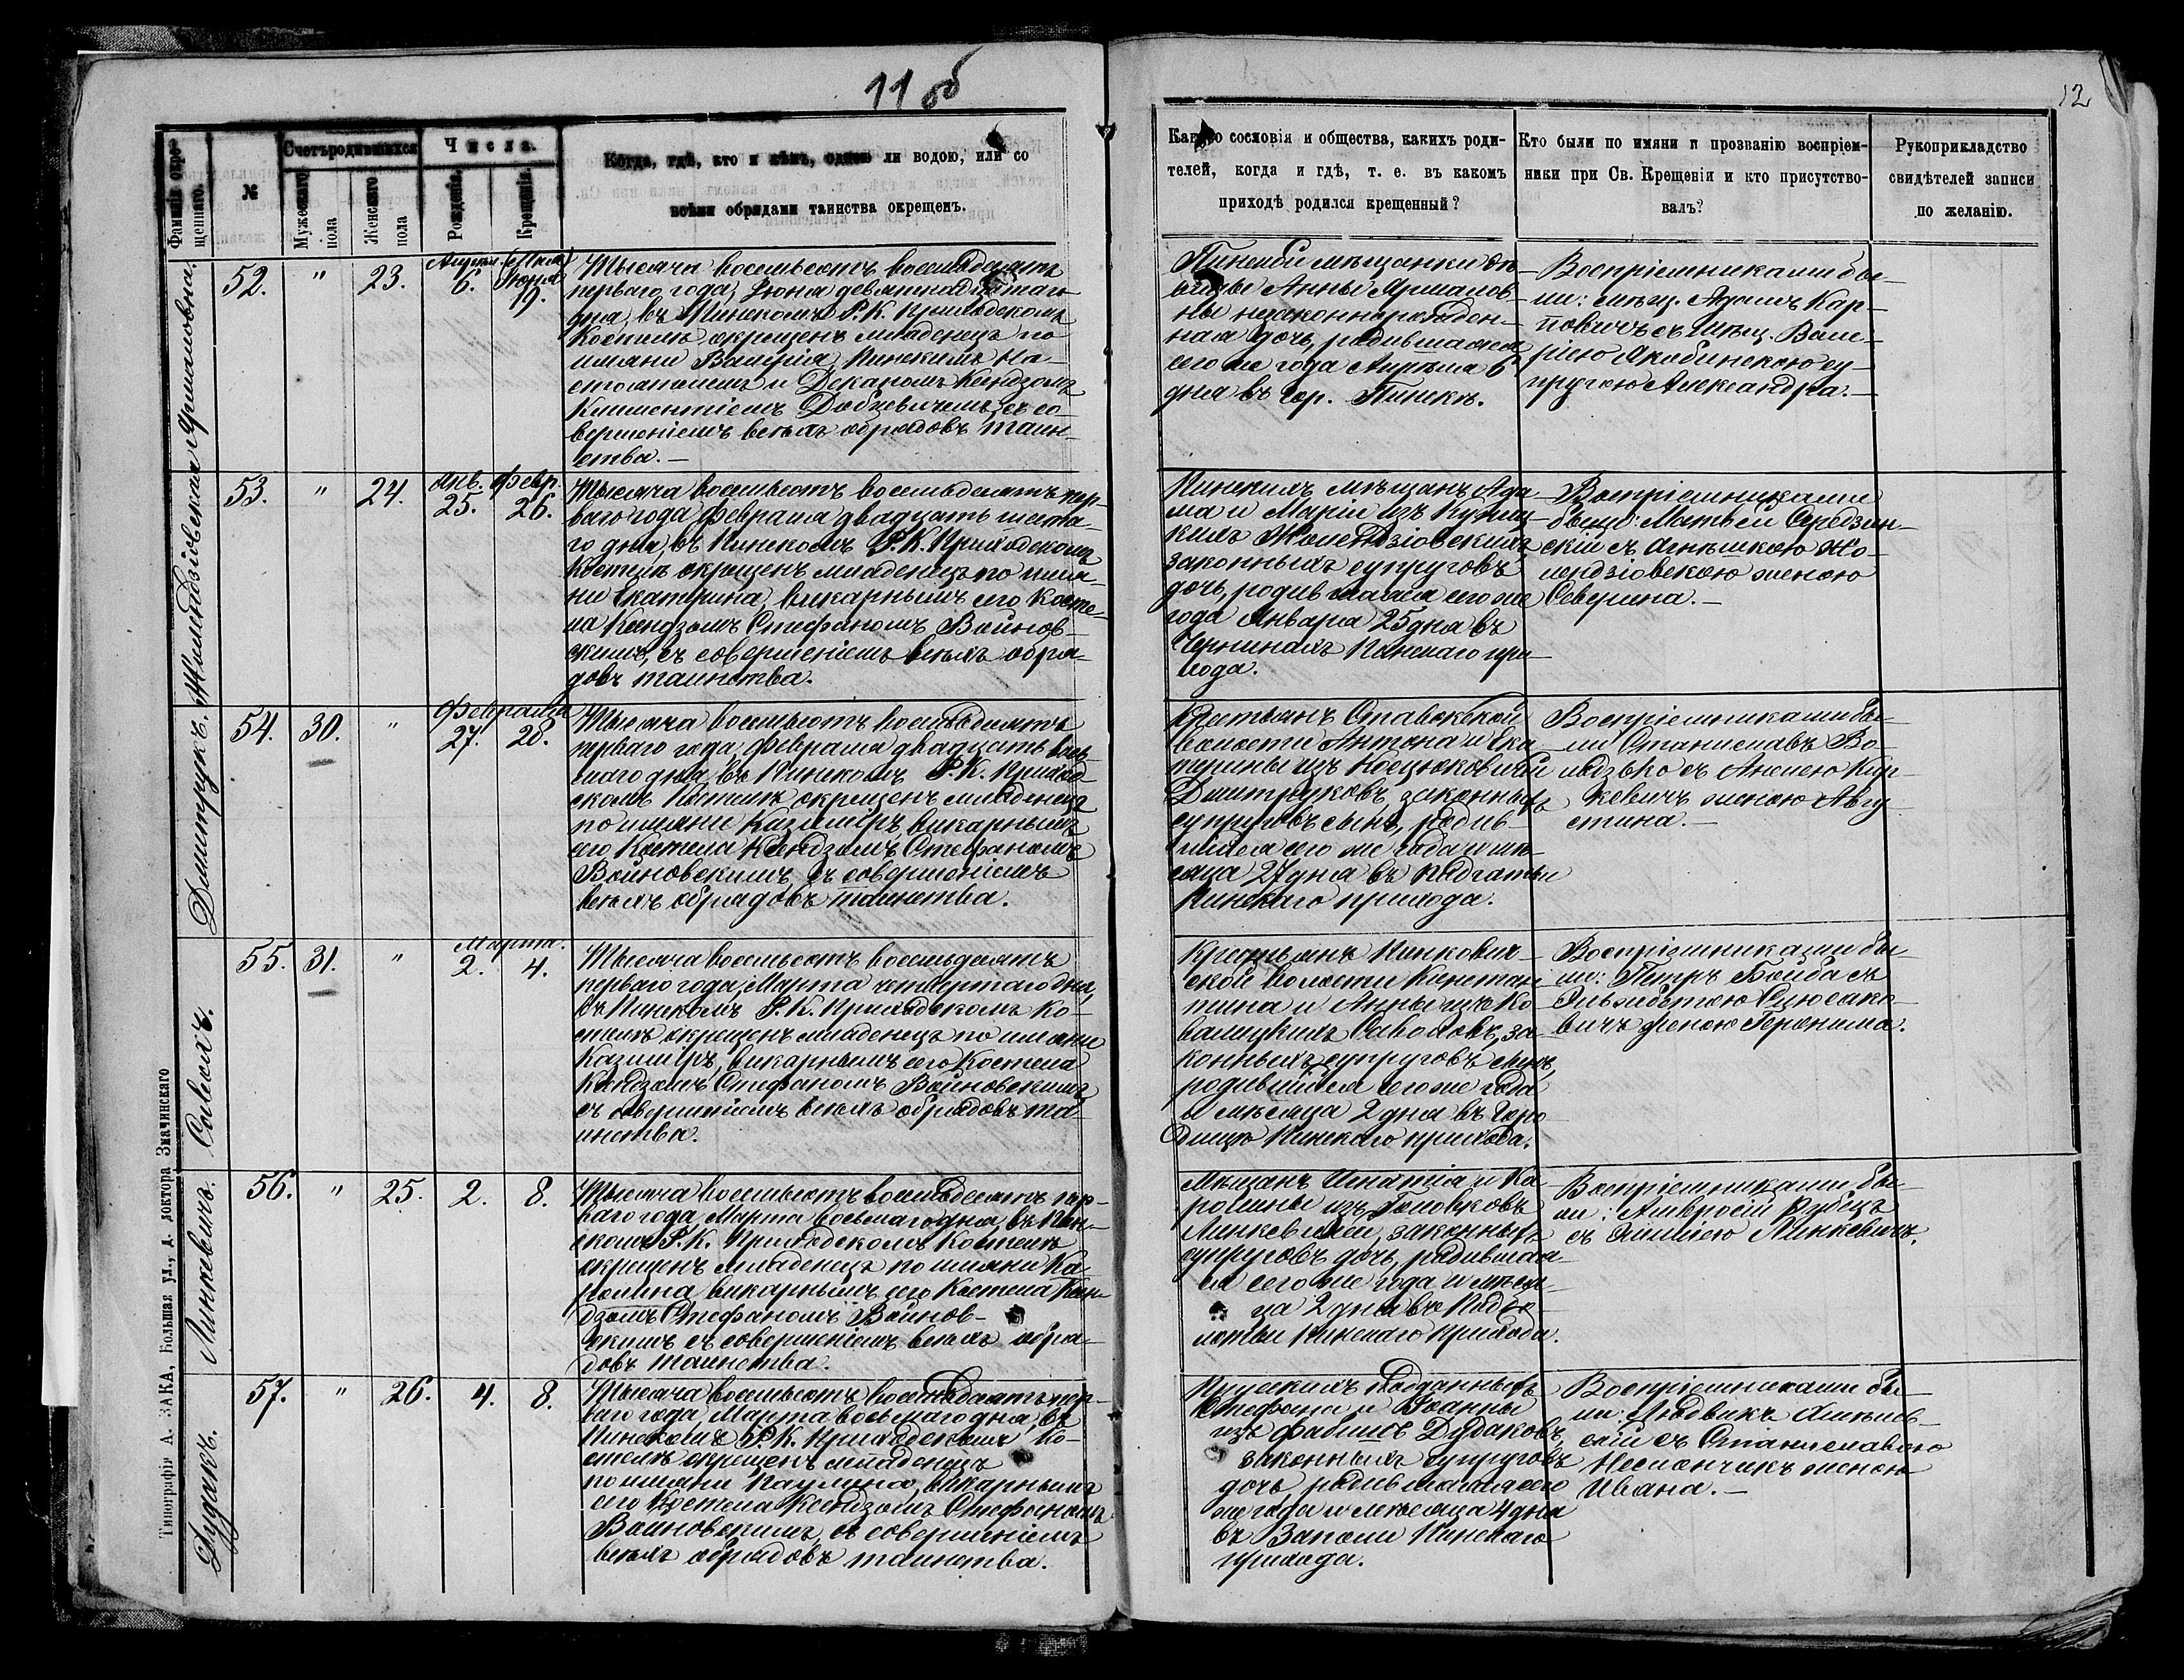 11 об
12
Фамилія окре-
щеннаго.
№
Счетъ родившихся
Мужескаго
пола
Женскаго
пола
Числа.
Рожденія.
Крещенія.
Когда, гдѣ, кто и кѣмъ, одною ли водою, или со
всѣми обрядами таинства окрещенъ.
Какого сословія и общества, какихъ роди-
телей, когда и гдѣ, т. е. въ какомъ
приходѣ родился крещенный?
Кто были по имяни и прозванію воспріем-
ники при Св. Крещеніи и кто присутство-
валъ?
Рукоприкладство
свидѣтелей записи
по желанію.
Ярмаловна.
52.
"
23.
6.
Іюня
19.
Тысяча восемьсотъ восемьдесятъ
перваго года, Іюня девятнадцатаго
дня, въ Пинскомъ Р. К. Приходскомъ
Костелѣ окрещенъ младенецъ по
имяни Валерія, Пинскимъ На-
стоятелемъ и Деканомъ Ксендзомъ
Климентіемъ съ со-
вершеніемъ всѣхъ обрядовъ таин-
ства.—
Пинской мѣщанки дѣ-
вицы Анны Ярмалов-
ны незаконнорожден-
ная дочь, родившаяся
сего же года Апрѣля 6
дня въ гор. Пинскѣ.
Воспріемниками бы-
ли: мѣщ. Адамъ Кар-
повичъ съ мѣщ. Вале-
ріею Якобинскою су-
пругою Александра.—
Жолендзіовская
53.
"
24.
Янв.
25.
Февр.
26.
Тысяча восемьсотъ восемьдесятъ пер-
ваго года Февраля двадцать шеста-
го дня, въ Пинскомъ Р. К. Приходскомъ
Костелѣ окрещенъ младенецъ по имя-
ни Екатерина, викарнымъ сего Косте-
ла Ксендзомъ Стефаномъ Войнов-
скимъ, съ совершеніемъ всѣхъ обря-
довъ таинства.
Пинскихъ мѣщанъ Ада-
ма и Маріи изъ
Жолендзіовскихъ
законныхъ супруговъ
дочь, родившаяся сего же
года Января 25 дня въ
Пинскаго при-
хода.
Воспріемниками
были: Матвей Средзин-
скій съ Агнѣшкою Жо-
лендзіовскою женою
Северина.—
Дмитрукъ.
54.
30.
"
Февраля
27.
28.
Тысяча восемьсотъ восемьдесятъ
перваго года, Февраля двадцать вось-
маго дня, въ Пинскомъ Р. К. Приход-
скомъ Костелѣ окрещенъ младенецъ
по имяни Казиміръ, викарнымъ
сего Костела Ксендзомъ Стефаномъ
Войновскимъ, съ совершеніемъ
всѣхъ обрядовъ таинства.
Крестьянъ Ставокской
волости Антона и Ека-
терины изъ
Дмитруковъ, законныхъ
супруговъ сынъ, родив-
шійся сего же года и мѣ-
сяца 27 дня въ
Пинскаго прихода.
Воспріемниками бы-
ли Станиславъ Во-
лодзько съ Аннею
женою Авгу-
стина.—
Савель.
55.
31.
"
Марта.
2.
4.
Тысяча восемьсотъ восемьдесятъ
перваго года, Марта четвертаго дня,
въ Пинскомъ Р. К. Приходскомъ Ко-
стелѣ окрещенъ младенецъ по имяни
Казиміръ, викарнымъ сего Костела
Ксендзомъ Стефаномъ Войновскимъ,
съ совершеніемъ всѣхъ обрядовъ та-
инства.
Крестьянъ Пинкович-
ской волости Констан-
тина и Анны изъ Ко-
вальцкихъ за-
конныхъ супруговъ сынъ,
родившійся сего же года
и мѣсяца 2 дня въ Горо-
дищѣ Пинскаго прихода.
Воспріемниками бы-
ли: Петръ съ
Эльжбетою
женою Геронима.
Линкевичъ.
56.
"
25.
2.
8.
Тысяча восемьсотъ восемьдесятъ пер-
ваго года Марта восьмаго дня, въ Пин-
скомъ Р. К. Приходскомъ Костелѣ
окрещенъ младенецъ по имяни Ка-
ролина, викарнымъ сего Костела Ксен-
дзомъ Стефаномъ Войнов-
скимъ съ совершеніемъ всѣхъ обря-
довъ таинства.
Мѣщанъ Игнатія и Ка-
ролины изъ Головковъ
Линкевичей, законныхъ
супруговъ дочь, родивша-
яся сего же года и мѣся-
ца 2 дня въ
Пинскаго прихода.
Воспріемниками бы-
ли: Амвросій Рубецъ
съ Эмиліею Линкевичъ.
Дудакъ.
57.
"
26.
4.
8.
Тысяча восемьсотъ восемьдесятъ пер-
ваго года, Марта восьмаго дня, въ
Пинскомъ Р. К. Приходскомъ Ко-
стелѣ окрещенъ младенецъ
по имяни Паулина, викарнымъ
сего Костела Ксендзомъ Стефаномъ
Войновскимъ, съ совершеніемъ
всѣхъ обрядовъ таинства.
Прускихъ подданныхъ
Стефана и Іоанны
изъ Дудаковъ,
законныхъ супруговъ
дочь, родившаяся сего
же года и мѣсяца 4 дня
въ Заполи Пинскаго
прихода.
Воспріемниками бы-
ли: Людвикъ
съ Станиславою
женою
Ивана.—
Типографія А. ЗАКА, Большая ул., д. доктора Змачинскаго